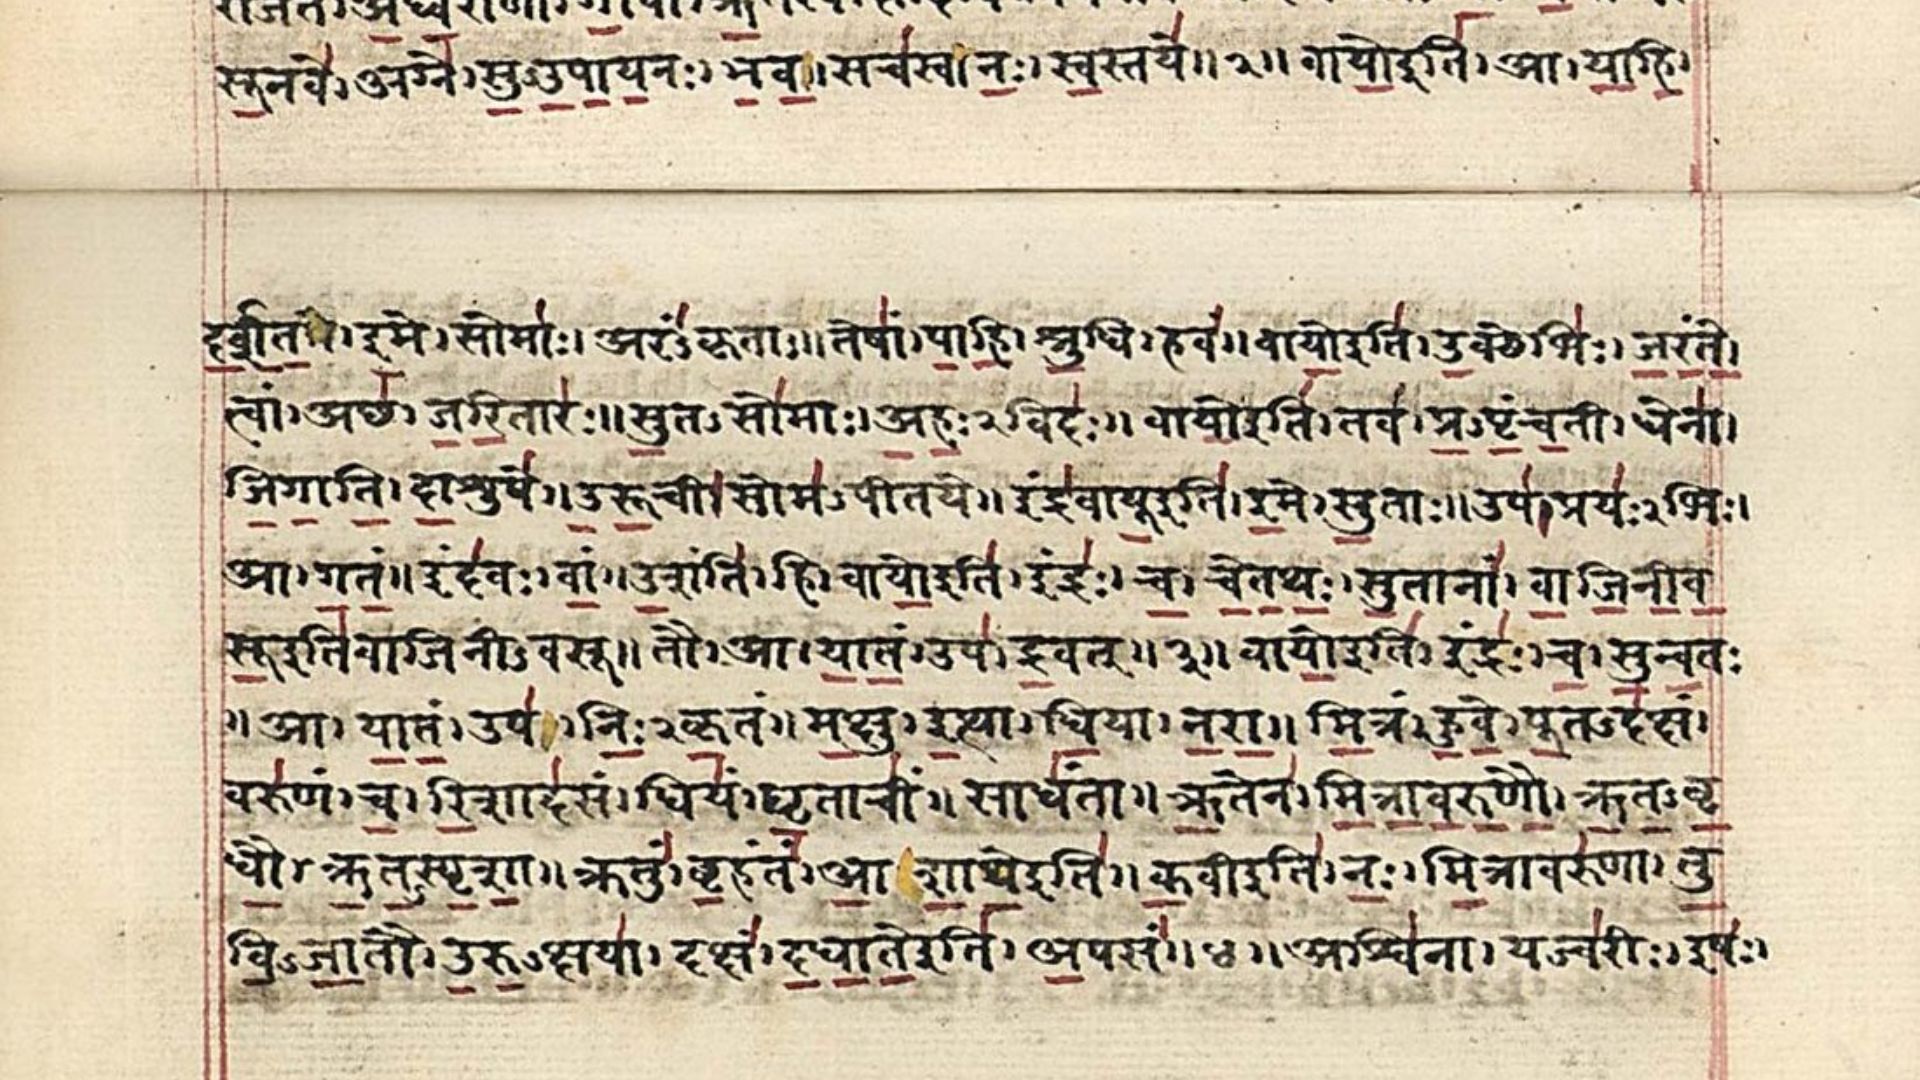 राजंतं। अध्वराणां। गोपां। ऋतस्य।
सूनवे। अग्ने। सुऽउपायनः। भव॥ सचस्व। नः। स्वस्तये॥२॥ वायोइति। आ। याहि।
दर्शत। इमे। सोमाः। अरंऽकृताः॥ तेषां। पाहि। श्रुधि। हवं॥ वायोइति। उक्थेभिः। जरंते।
त्वां। अच्छ। जरितारः॥ सुतऽसोमाः। अहःऽविदः॥ वायोइति। तव। प्रऽपृंचती। धेना।
जिगाति। दाशुषे॥ उरूची। सोमऽपीतये॥ इंद्रवायूइति। इमे। सुताः॥ उप। प्रयःऽभिः।
आ। गतं॥ इंदवः। वां॥ उशंति। हि। वायोइति। इंद्रः। च। चेतथः। सुतानां। वाजिनीव
सूइतिवाजिनीऽवसू॥ तौ। आ। यातं। उप। द्रवत्॥३॥ वायोइति। इंद्रः। च। सुन्वतः
॥ आ। यातं। उप। निःऽकृतं॥ मक्षु। इत्था। धिया। नरा॥ मित्रं। हुवे। पूतऽदक्षं।
वरुणं। च। रिशादसं। धियं। घृताचीं। साधंता॥ ऋतेन। मित्रावरुणौ। ऋतऽवृ
धौ। ऋतऽस्पृशा॥ क्रतुं। बृहंतं। आशाथेइति॥ कवीइति। नः। मित्रावरुणा। तु
विऽजातौ। उरुऽक्षया। दक्षं। दधातेइति। अपसं॥४॥ अश्विना। यज्वरीः। इषः।